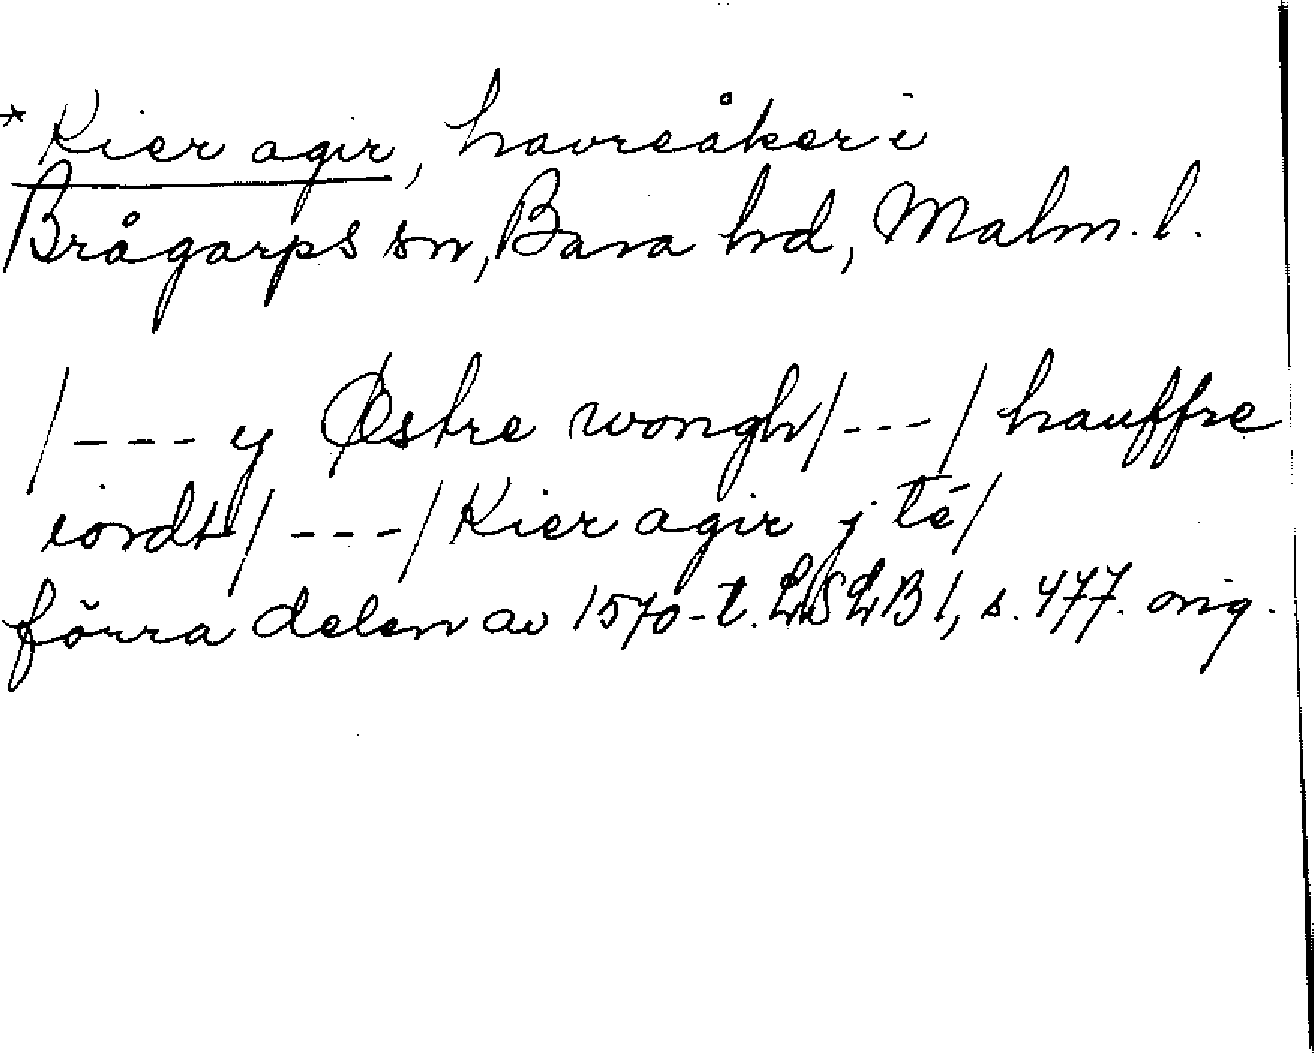 * Kier agir, havreåker i
Brågarps sn, Bara hd, Malm. l.
/---y Østre wongh/---/hauffre
iordt/---/Kier agir j té/
förra delen av 1570-t. LSLB1, s. 477. orig.